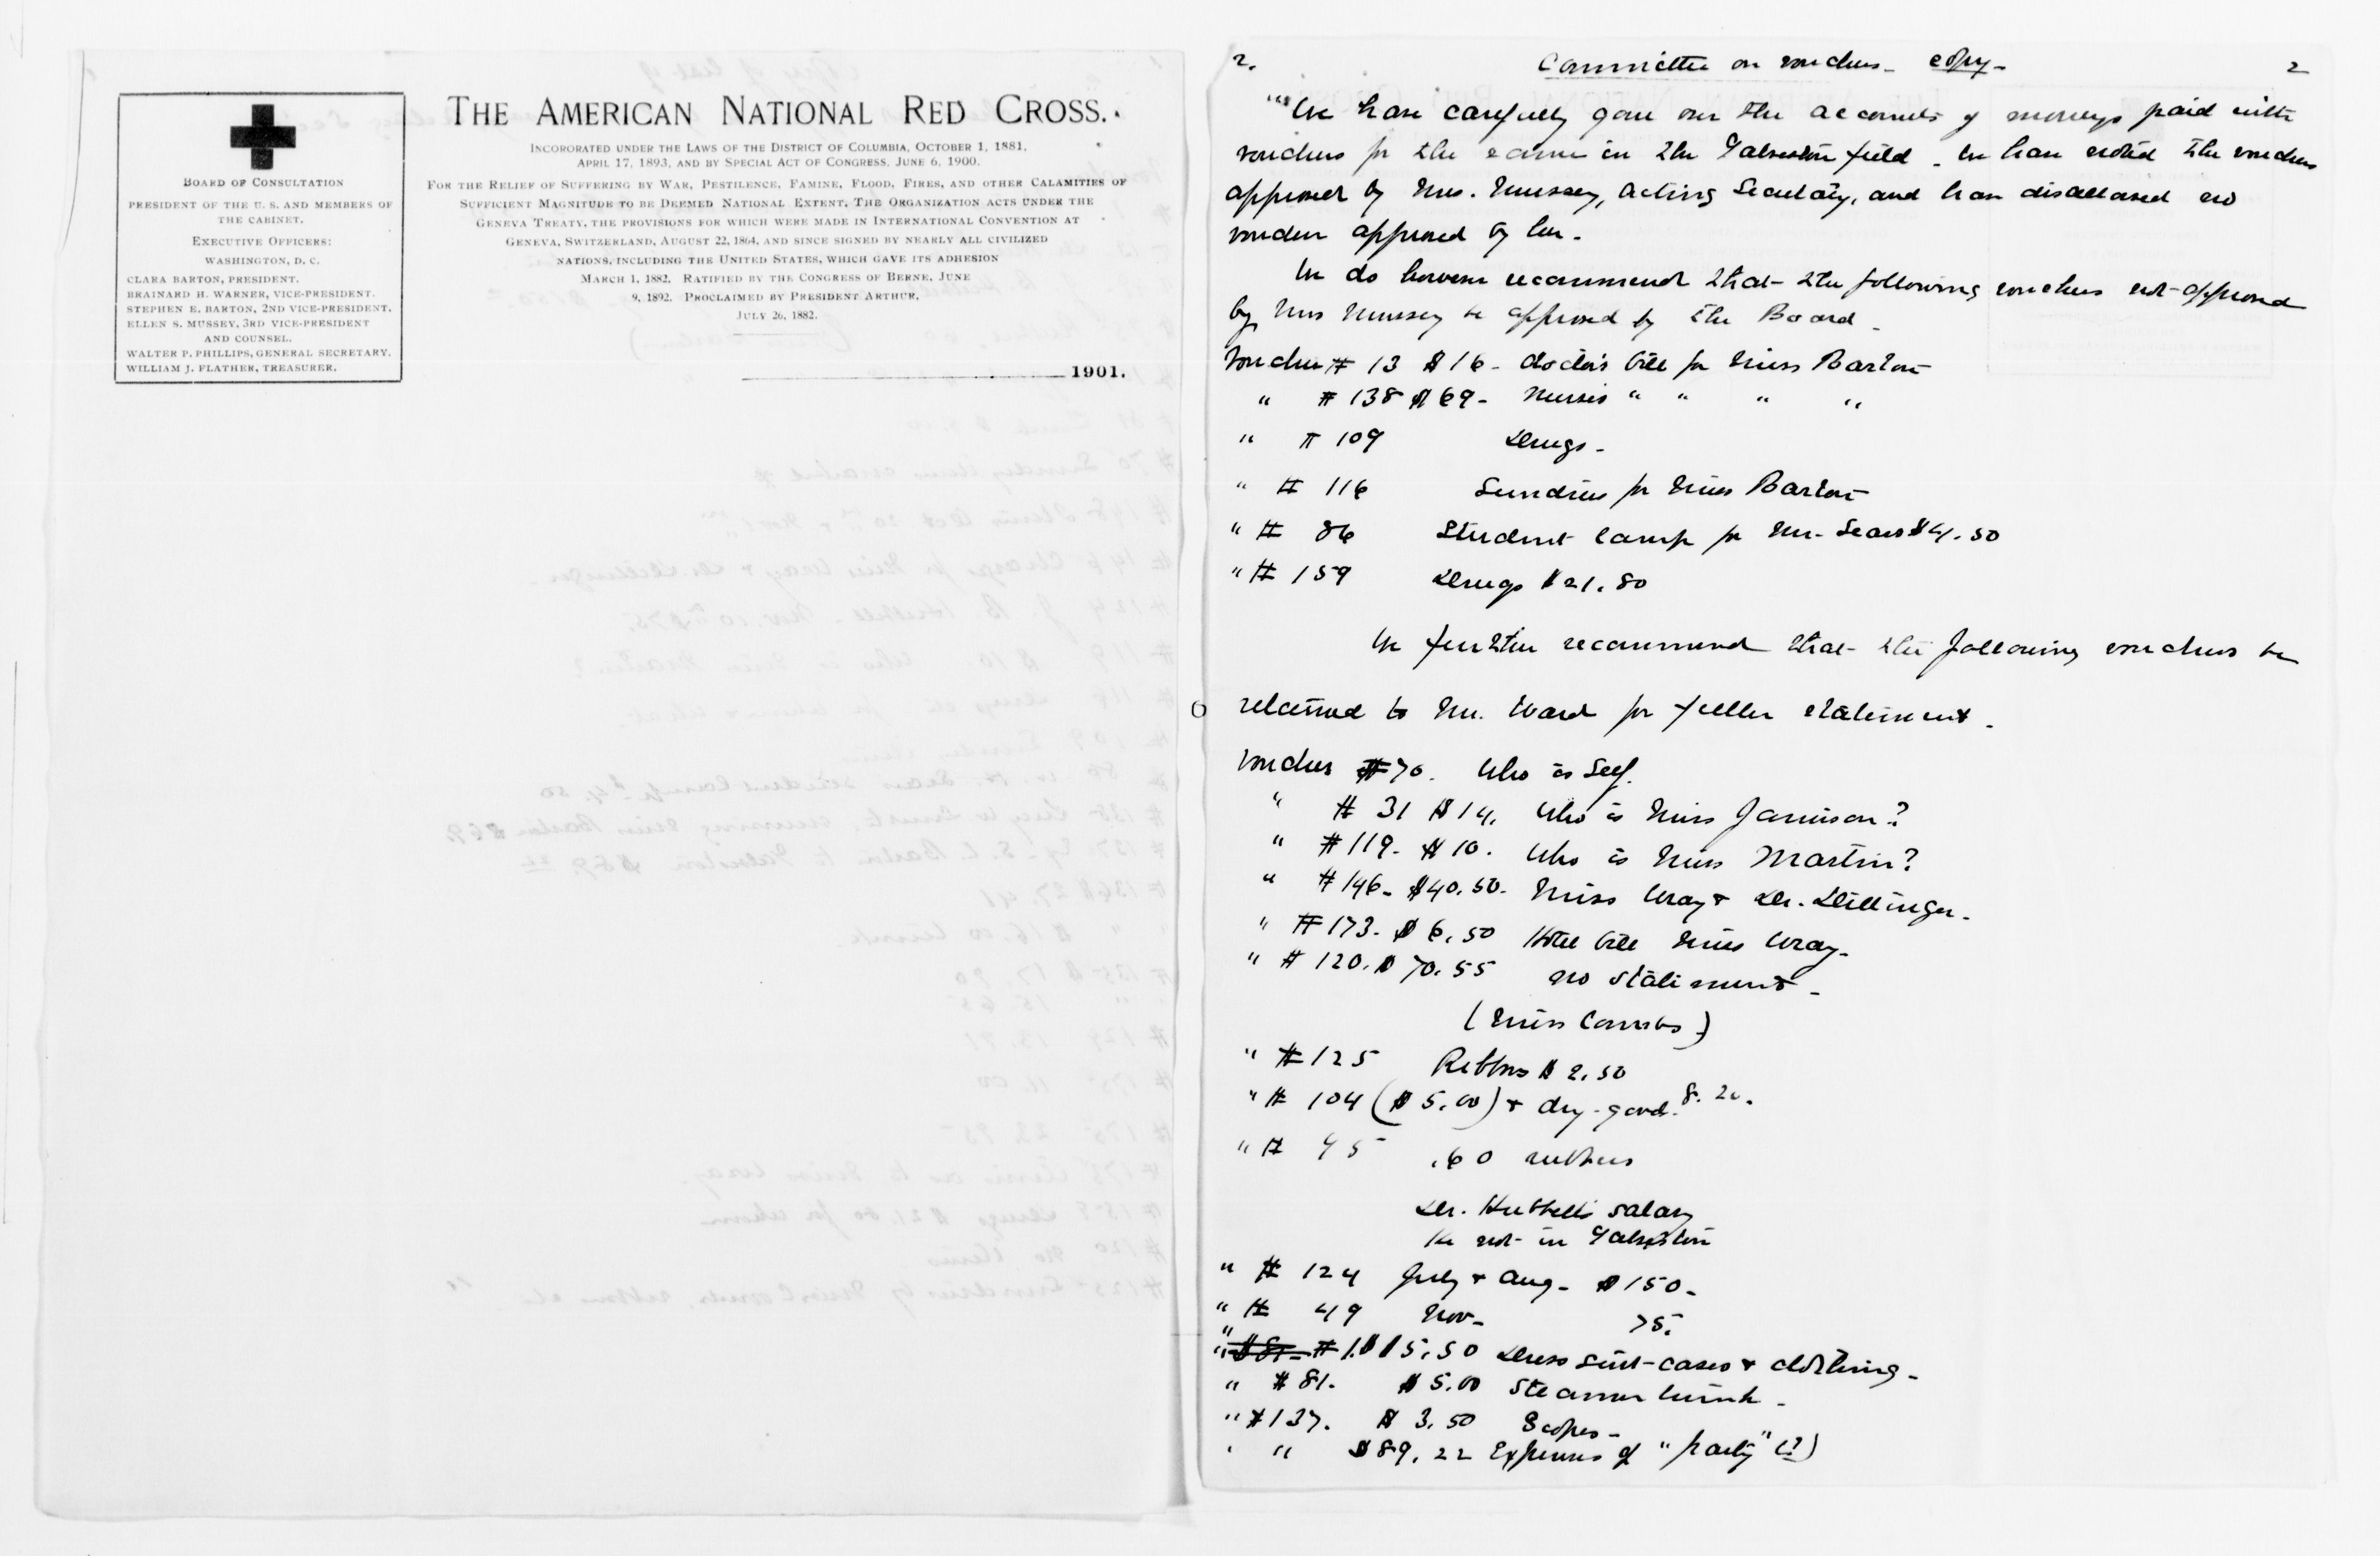 BOARD OF CONSULTATION
PRESIDENT OF THE U. S. AND MEMBERS OF
THE CABINET.
EXECUTIVE OFFICERS:
WASHINGTON, D. C.
CLARA BARTON, PRESIDENT.
BRAINARD H. WARNER, VICE-PRESIDENT.
STEPHEN E. BARTON, 2ND VICE-PRESIDENT.
ELLEN S. MUSSEY, 3RD VICE-PRESIDENT
AND COUNSEL.
WALTER P. PHILLIPS, GENERAL SECRETARY.
WILLIAM J. FLATHER, TREASURER.
THE AMERICAN NATIONAL RED CROSS.
INCORORATED UNDER THE LAWS OF THE DISTRICT OF COLUMBIA, OCTOBER 1, 1881,
APRIL 17, 1893, AND BY SPECIAL ACT OF CONGRESS, JUNE 6, 1900.
FOR THE RELIEF OF SUFFERING BY WAR, PESTILENCE, FAMINE, FLOOD, FIRES, AND OTHER CALAMITIES OF
SUFFICIENT MAGNITUDE TO BE DEEMED NATIONAL EXTENT. THE ORGANIZATION ACTS UNDER THE
GENEVA TREATY, THE PROVISIONS FOR WHICH WERE MADE IN INTERNATIONAL CONVENTION AT
GENEVA, SWITZERLAND, AUGUST 22, 1864, AND SINCE SIGNED BY NEARLY ALL CIVILIZED
NATIONS, INCLUDING THE UNITED STATES, WHICH GAVE ITS ADHESION
MARCH 1, 1882. RATIFIED BY THE CONGRESS OF BERNE, JUNE
9, 1892. PROCLAIMED BY PRESIDENT ARTHUR,
JULY 26, 1882.
1901.
2. Committee on vouchers - copy - 2
"We have carefully gone over the accounts of moneys paid with
vouchers for the same in the Galveston field. We have noted the vouchers
approved by Mrs. Mussey, Acting Secretary, and have disallowed no
voucher approved by her.
We do however recommend that the following vouchers not approved
by Mrs Mussey be approved by the Board.
Voucher # 13 $16 - doctor's bill for Miss Barton
" # 138 $69 - Nurses " " " "
" # 109 Drugs -
" # 116 Sundries for Miss Barton
" # 86 Student lamp for Mr. Sears $4.50
" # 159 Drugs $21.80
We further recommend that the following vouchers be
returned to Mr. Ward for fuller statement.
Voucher #70. Who is Self.
" # 31 $14. Who is Miss Jamison?
" # 119. $10. Who is Miss Martin?
" # 146 - $40.50 - Miss Wray & Dr. Dillinger -
" # 173. $6.50 Hotel bill Miss Wray -
" # 120. $70.55 no statement -
(Miss Coombs)
" # 125 Ribbons $2.50
" # 104 ($5.00) & dry-good. 8.20.
" # 45 .60 rubbers
Dr. Hubbell's salary
He not in Galveston
" # 124 July & Aug - $150 -
" # 49 Nov - 75.
$15.50 Dress suit-cases & clothing -
" # 81. $5.00 Steamer trunk -
" # 137. $3.50
" " $89.22 Expenses of "party" (?)